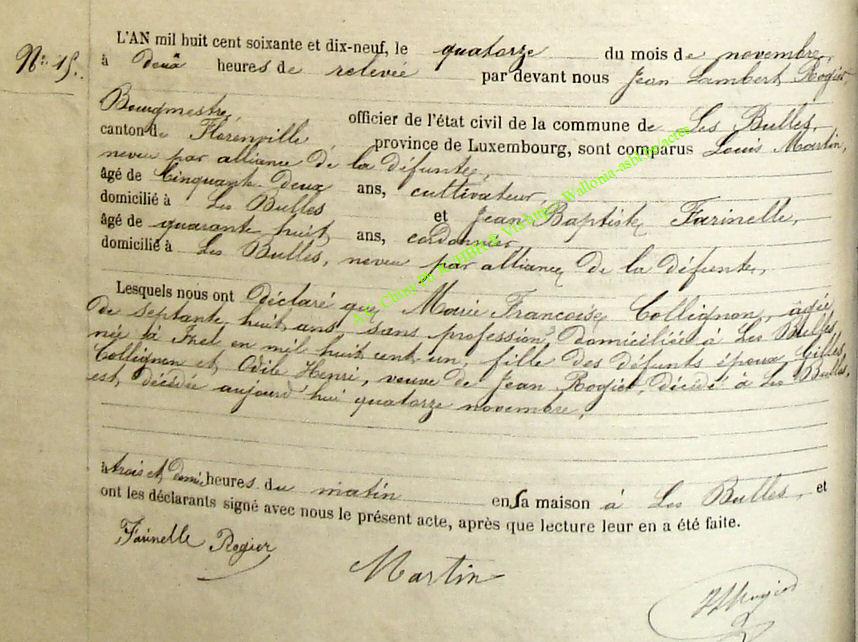 N° 15.
L'AN mil huit cent soixante et dix-neuf, le quatorze du mois de novembre,
à deux heures de relevée par devant nous Jean Lambert Rogier,
Bourgmestre, officier de l'état civil de la commune de Les Bulles,
canton de Florenville province de Luxembourg, sont comparus Louis Martin,
neveu par alliance de la défunte,
âgé de Cinquante deux ans, cultivateur,
domicilié à Les Bulles et Jean Baptiste Farinelle,
âgé de quarante huit ans, cordonnier
domicilié à Les Bulles, neveu par alliance de la défunte,
Lesquels nous ont Déclaré que Marie Françoise Collignon, âgée
de septante huit ans sans profession, domiciliée à Les Bulles,
née à en mil huit cent un, fille des défunts époux Gilles
Collignon et Odile Henri, veuve de Jean Rogier, décédé à Les Bulles,
est décédée aujourd'hui quatorze novembre,
à trois et demie heures du matin en sa maison à Les Bulles, et
ont les déclarants signé avec nous le présent acte, après que lecture leur en a été faite.
Farinelle Rogier
Martin
JLRogier